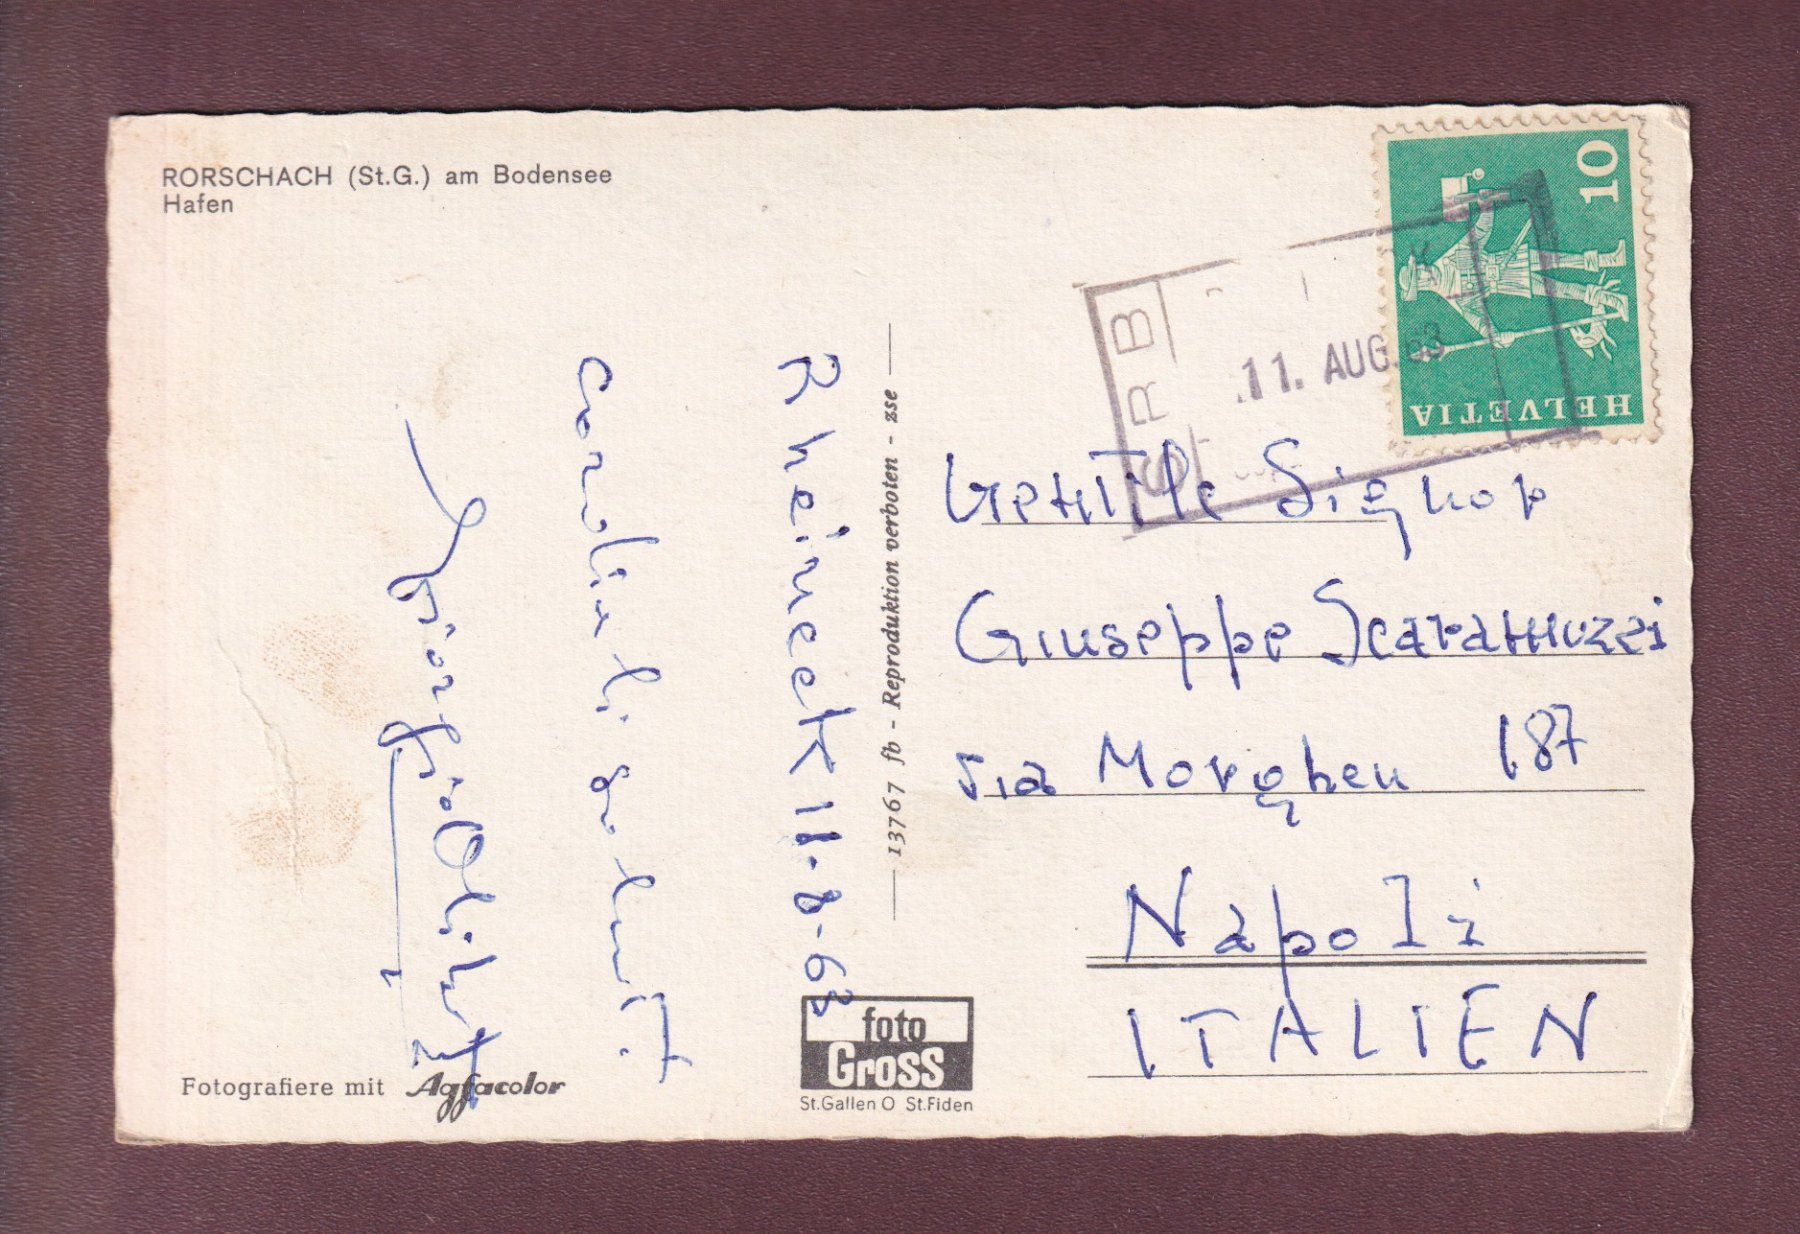 RORSCHACH (St.G.) am Bodensee
Hafen
Rheineck 11-8-63
cordiali saluti
13767 fb - Reproduktion verboten - zse
10
HELVETIA
SRB
11. AUG. 63
Gentile Signor
Giuseppe Scaramuzzi
via Morghen 187
Napoli
ITALIEN
foto
Gross
St.Gallen O St.Fiden
Fotografiere mit Agfacolor